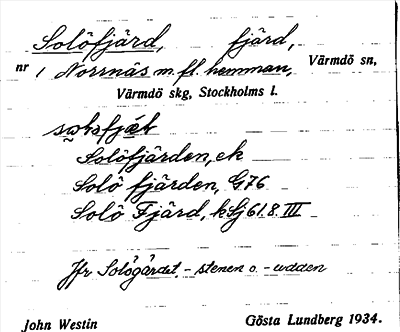 Solöfjärd, fjärd,
nr 1 Norrnäs m. fl. hemman, Värmdö sn,
Värmdö skg, Stockholms l.
Solöfjärden, ek
Solö fjärden, G76
Solö Fjärd, kSj 61.8. III
Jfr Solögärdet, - stenen o. - udden
John Westin Gösta Lundberg 1934.